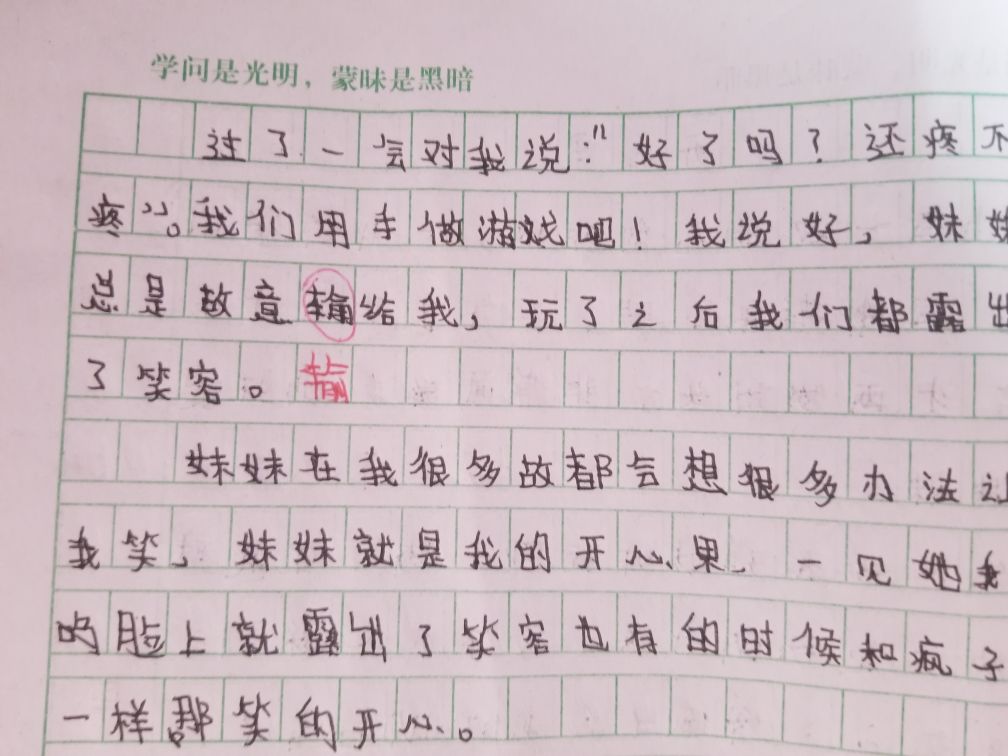 学问是光明，蒙昧是黑暗
过了一会对我说："好了吗？还疼不
疼"。我们用手做游戏吧！我说好，妹妹
总是故意输给我，玩了之后我们都露出
了笑容。输
妹妹在我很多故都会想很多办法让
我笑，妹妹就是我的开心果，一见她我
的脸上就露出了笑容也有的时候和疯子
一样。那笑的开心。